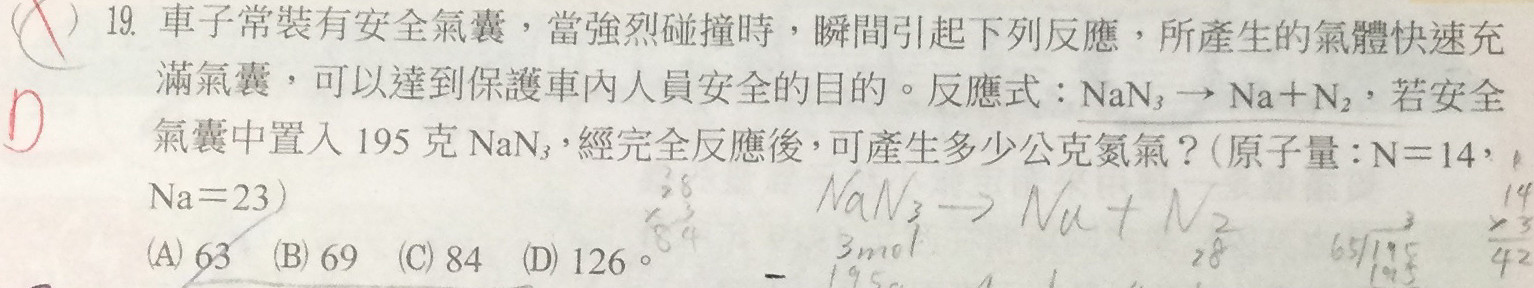 ( ) 19. 車子常裝有安全氣囊，當強烈碰撞時，瞬間引起下列反應，所產生的氣體快速充
D 滿氣囊，可以達到保護車內人員安全的目的。反應式：NaN₃ → Na＋N₂，若安全
氣囊中置入 195 克 NaN₃，經完全反應後，可產生多少公克氮氣？(原子量：N＝14，
Na＝23)
28
× 3
84
NaN₃ → Na + N₂
3mol
28
195g
3
65/195
195
14
× 3
42
(A) 63 (B) 69 (C) 84 (D) 126。